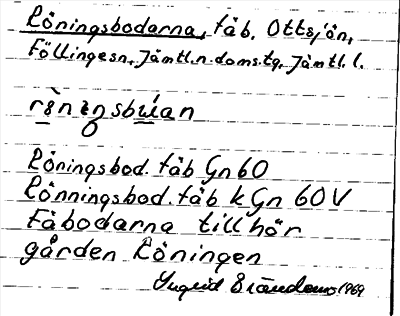 Röningsbodarna, fäb. Ottsjön,
Föllingesn, Jämtl.n.doms.tg, Jämtl.l.
rö̀nıŋsbúan
Röningsbod. fäb Gn 60
Rönningsbod. fäb k Gn 60 V
Fäbodarna tillhör
gården Röningen
Ingrid 1969